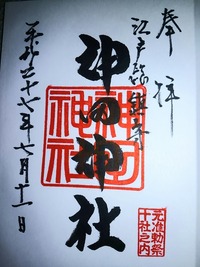 奉拝
江戸総鎮守
神田神社
神田神社
元准勅祭
十社之内
平成二十七年七月十一日